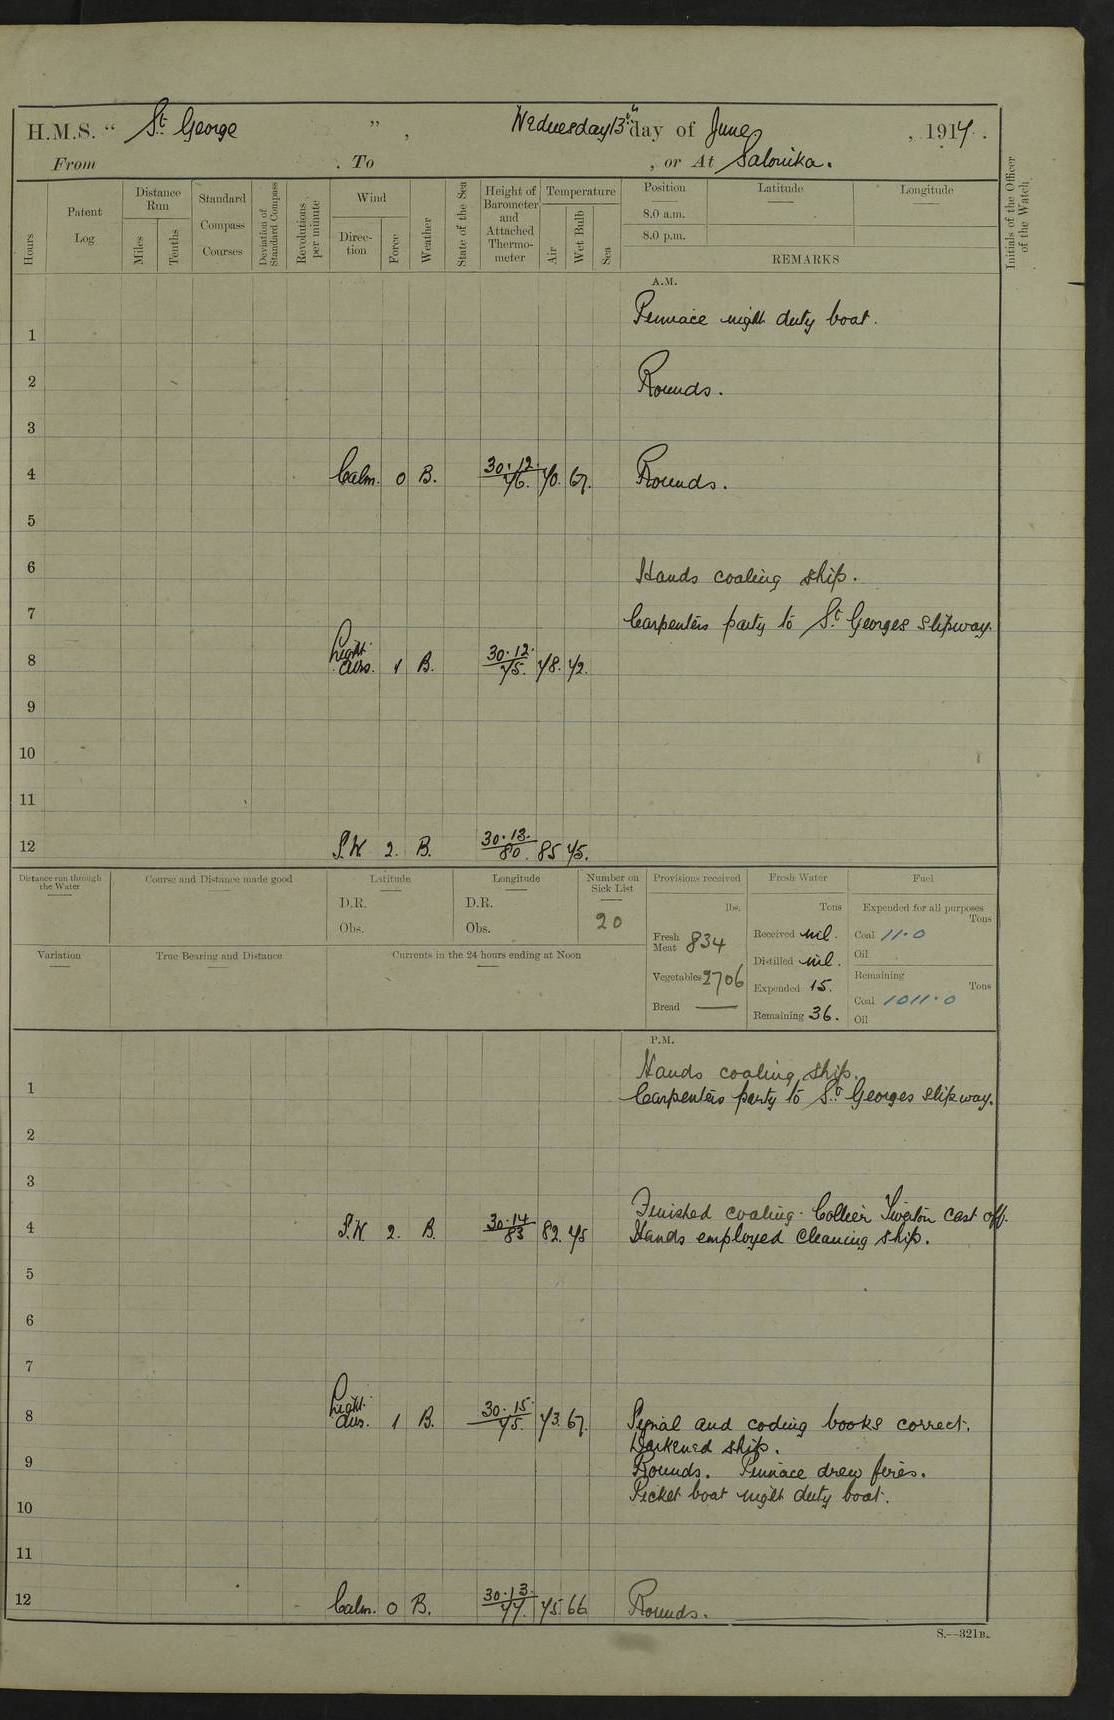 H.M.S. “ St George ” , Wednesday 13th day of June , 1917 .
From . To , or At Salonika.
Hours
Patent Log
Distance Run
Miles
Tenths
Standard Compass Courses
Deviation of Standard Compass
Revolutions per minute
Wind
Direction
Force
Weather
State of the Sea
Height of Barometer and Attached Thermometer
Temperature
Air
Wet Bulb
Sea
Position
8.0 a.m.
8.0 p.m.
Latitude
Longitude
REMARKS
Initials of the Officer of the Watch
A.M.
Pinnace night duty boat.
1
2 Rounds.
3
4 Calm. 0 B. 30.12. 76. 70. 67. Rounds.
5
6 Hands coaling ship.
7 Carpenters party to St Georges slipway.
8 Light airs. 1 B. 30.12. 75. 78. 72.
9
10
11
12 S.W 2. B. 30.13. 80. 85 75.
Distance run through the Water
Course and Distance made good
Latitude
D.R.
Obs.
Longitude
D.R.
Obs.
Number on Sick List
20
Provisions received
lbs.
Fresh Meat 834
Vegetables 2706
Bread —
Fresh Water
Tons
Received nil.
Distilled nil.
Expended 15.
Remaining 36.
Fuel
Expended for all purposes
Tons
Coal 11.0
Oil
Remaining
Tons
Coal 1011.0
Oil
Variation
True Bearing and Distance
Currents in the 24 hours ending at Noon
P.M.
Hands coaling ship.
1 Carpenters party to St Georges slipway.
2
3
Finished coaling. Collier Tiverton cast off.
4 S.W 2. B. 30.14 83 82. 75 Hands employed cleaning ship.
5
6
7
8 Light airs. 1 B. 30.15. 75. 73. 67. Signal and coding books correct.
Darkened ship.
9 Rounds. Pinnace drew fires.
Picket boat night duty boat.
10
11
12 Calm. 0 B. 30.13. 77. 75. 66 Rounds.
S.—321B.